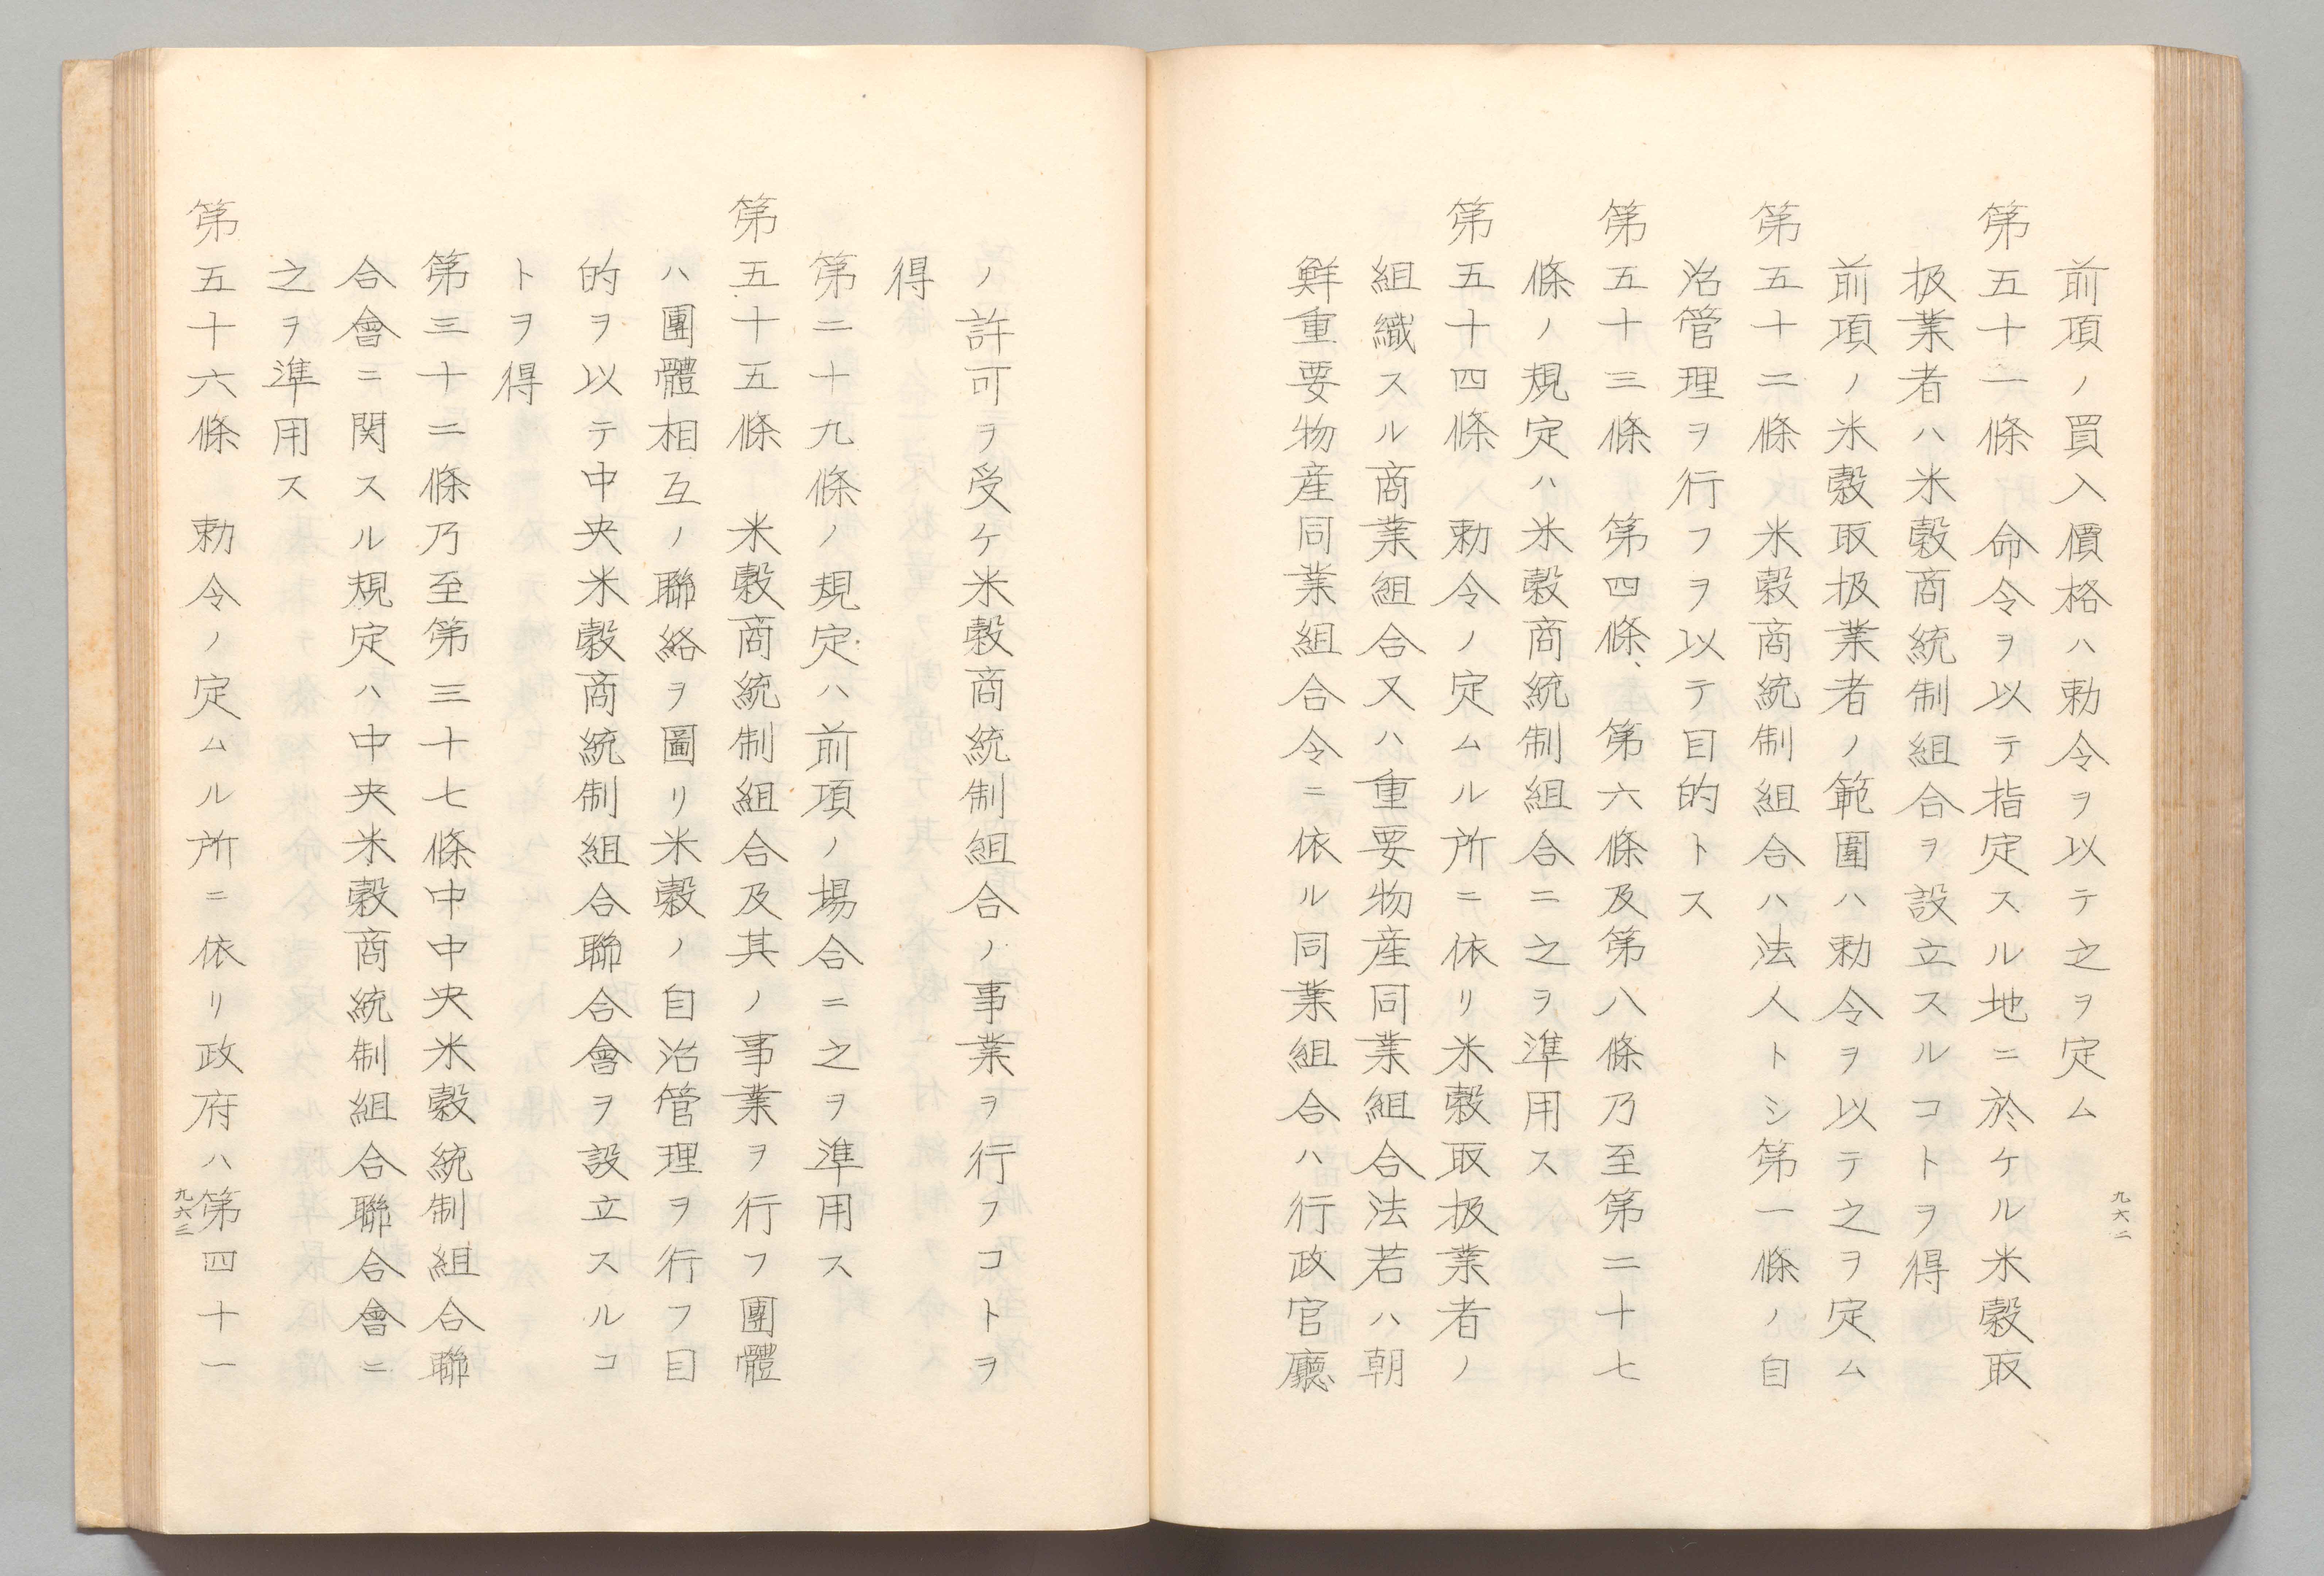 前項ノ買入價格ハ勅令ヲ以テ之ヲ定ム
第五十一條　命令ヲ以テ指定スル地ニ於ケル米穀取
扱業者ハ米穀商統制組合ヲ設立スルコトヲ得
前項ノ米穀取扱業者ノ範圍ハ勅令ヲ以テ之ヲ定ム
第五十二條　米穀商統制組合ハ法人トシ第一條ノ自
治管理ヲ行フヲ以テ目的トス
第五十三條　第四條、第六條及第八條乃至第二十七
條ノ規定ハ米穀商統制組合ニ之ヲ準用ス
第五十四條　勅令ノ定ムル所ニ依リ米穀取扱業者ノ
組織スル商業組合又ハ重要物産同業組合法若ハ朝
鮮重要物産同業組合令ニ依ル同業組合ハ行政官廳
九六二
ノ許可ヲ受ケ米穀商統制組合ノ事業ヲ行フコトヲ
得
第二十九條ノ規定ハ前項ノ場合ニ之ヲ準用ス
第五十五條　米穀商統制組合及其ノ事業ヲ行フ團體
ハ團體相互ノ聯絡ヲ圖リ米穀ノ自治管理ヲ行フ目
的ヲ以テ中央米穀商統制組合聯合會ヲ設立スルコ
トヲ得
第三十二條乃至第三十七條中中央米穀統制組合聯
合會ニ関スル規定ハ中央米穀商統制組合聯合會ニ
之ヲ準用ス
第五十六條　勅令ノ定ムル所ニ依リ政府ハ第四十一
九六三